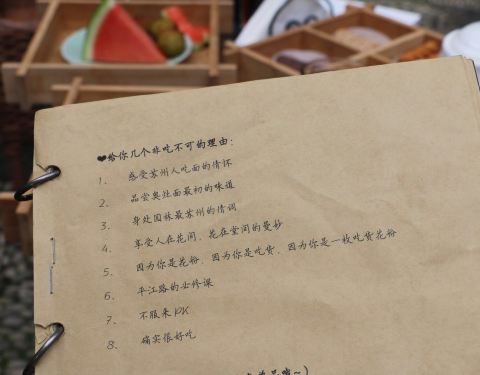 ❤给你几个非吃不可的理由:
1、 感受苏州人吃面的情怀
2、 品尝奥灶面最初的味道
3、 身处园林最苏州的情调
4、 享受人在花间、花在堂间的曼妙
5、 因为你是花粉、因为你是吃货、因为你是一枚吃货花粉
6、 平江路的必修课
7、 不服来PK
8、 确实很好吃